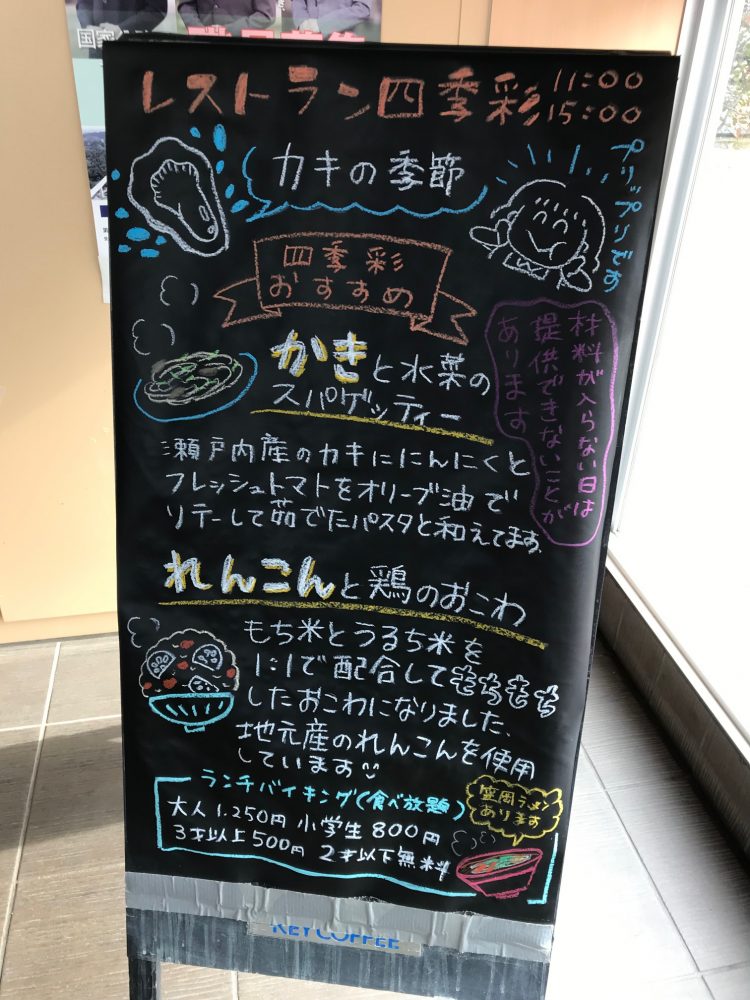 レストラン四季彩 11:00
15:00
カキの季節
プリップリです
四季彩
おすすめ
かきと水菜の
スパゲッティー
材料が入らない日は
提供できないことが
あります
瀬戸内産のカキににんにくと
フレッシュトマトをオリーブ油で
ソテーして茹でたパスタと和えてます。
れんこんと鶏のおこわ
もち米とうるち米を
1:1で配合してもちもち
したおこわになりました、
地元産のれんこんを使用
しています
ランチバイキング(食べ放題)
大人1,250円 小学生800円
3才以上500円 2才以下無料
盛岡ラーメン
あります
KEY COFFEE